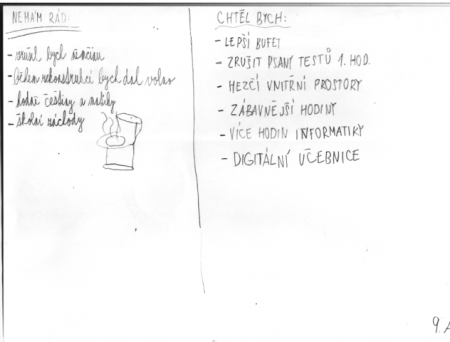 NEMÁM RÁD:
- zrušil bych
- Během rekonstrukcí bych dal volno
- hodně češtiny a matiky
- školní záchody
CHTĚL BYCH:
- LEPŠÍ BUFET
- ZRUŠIT PSANÍ TESTŮ 1. HOD.
- HEZČÍ VNITŘNÍ PROSTORY
- ZÁBAVNĚJŠÍ HODINY
- VÍCE HODIN INFORMATIKY
- DIGITÁLNÍ UČEBNICE
9.A